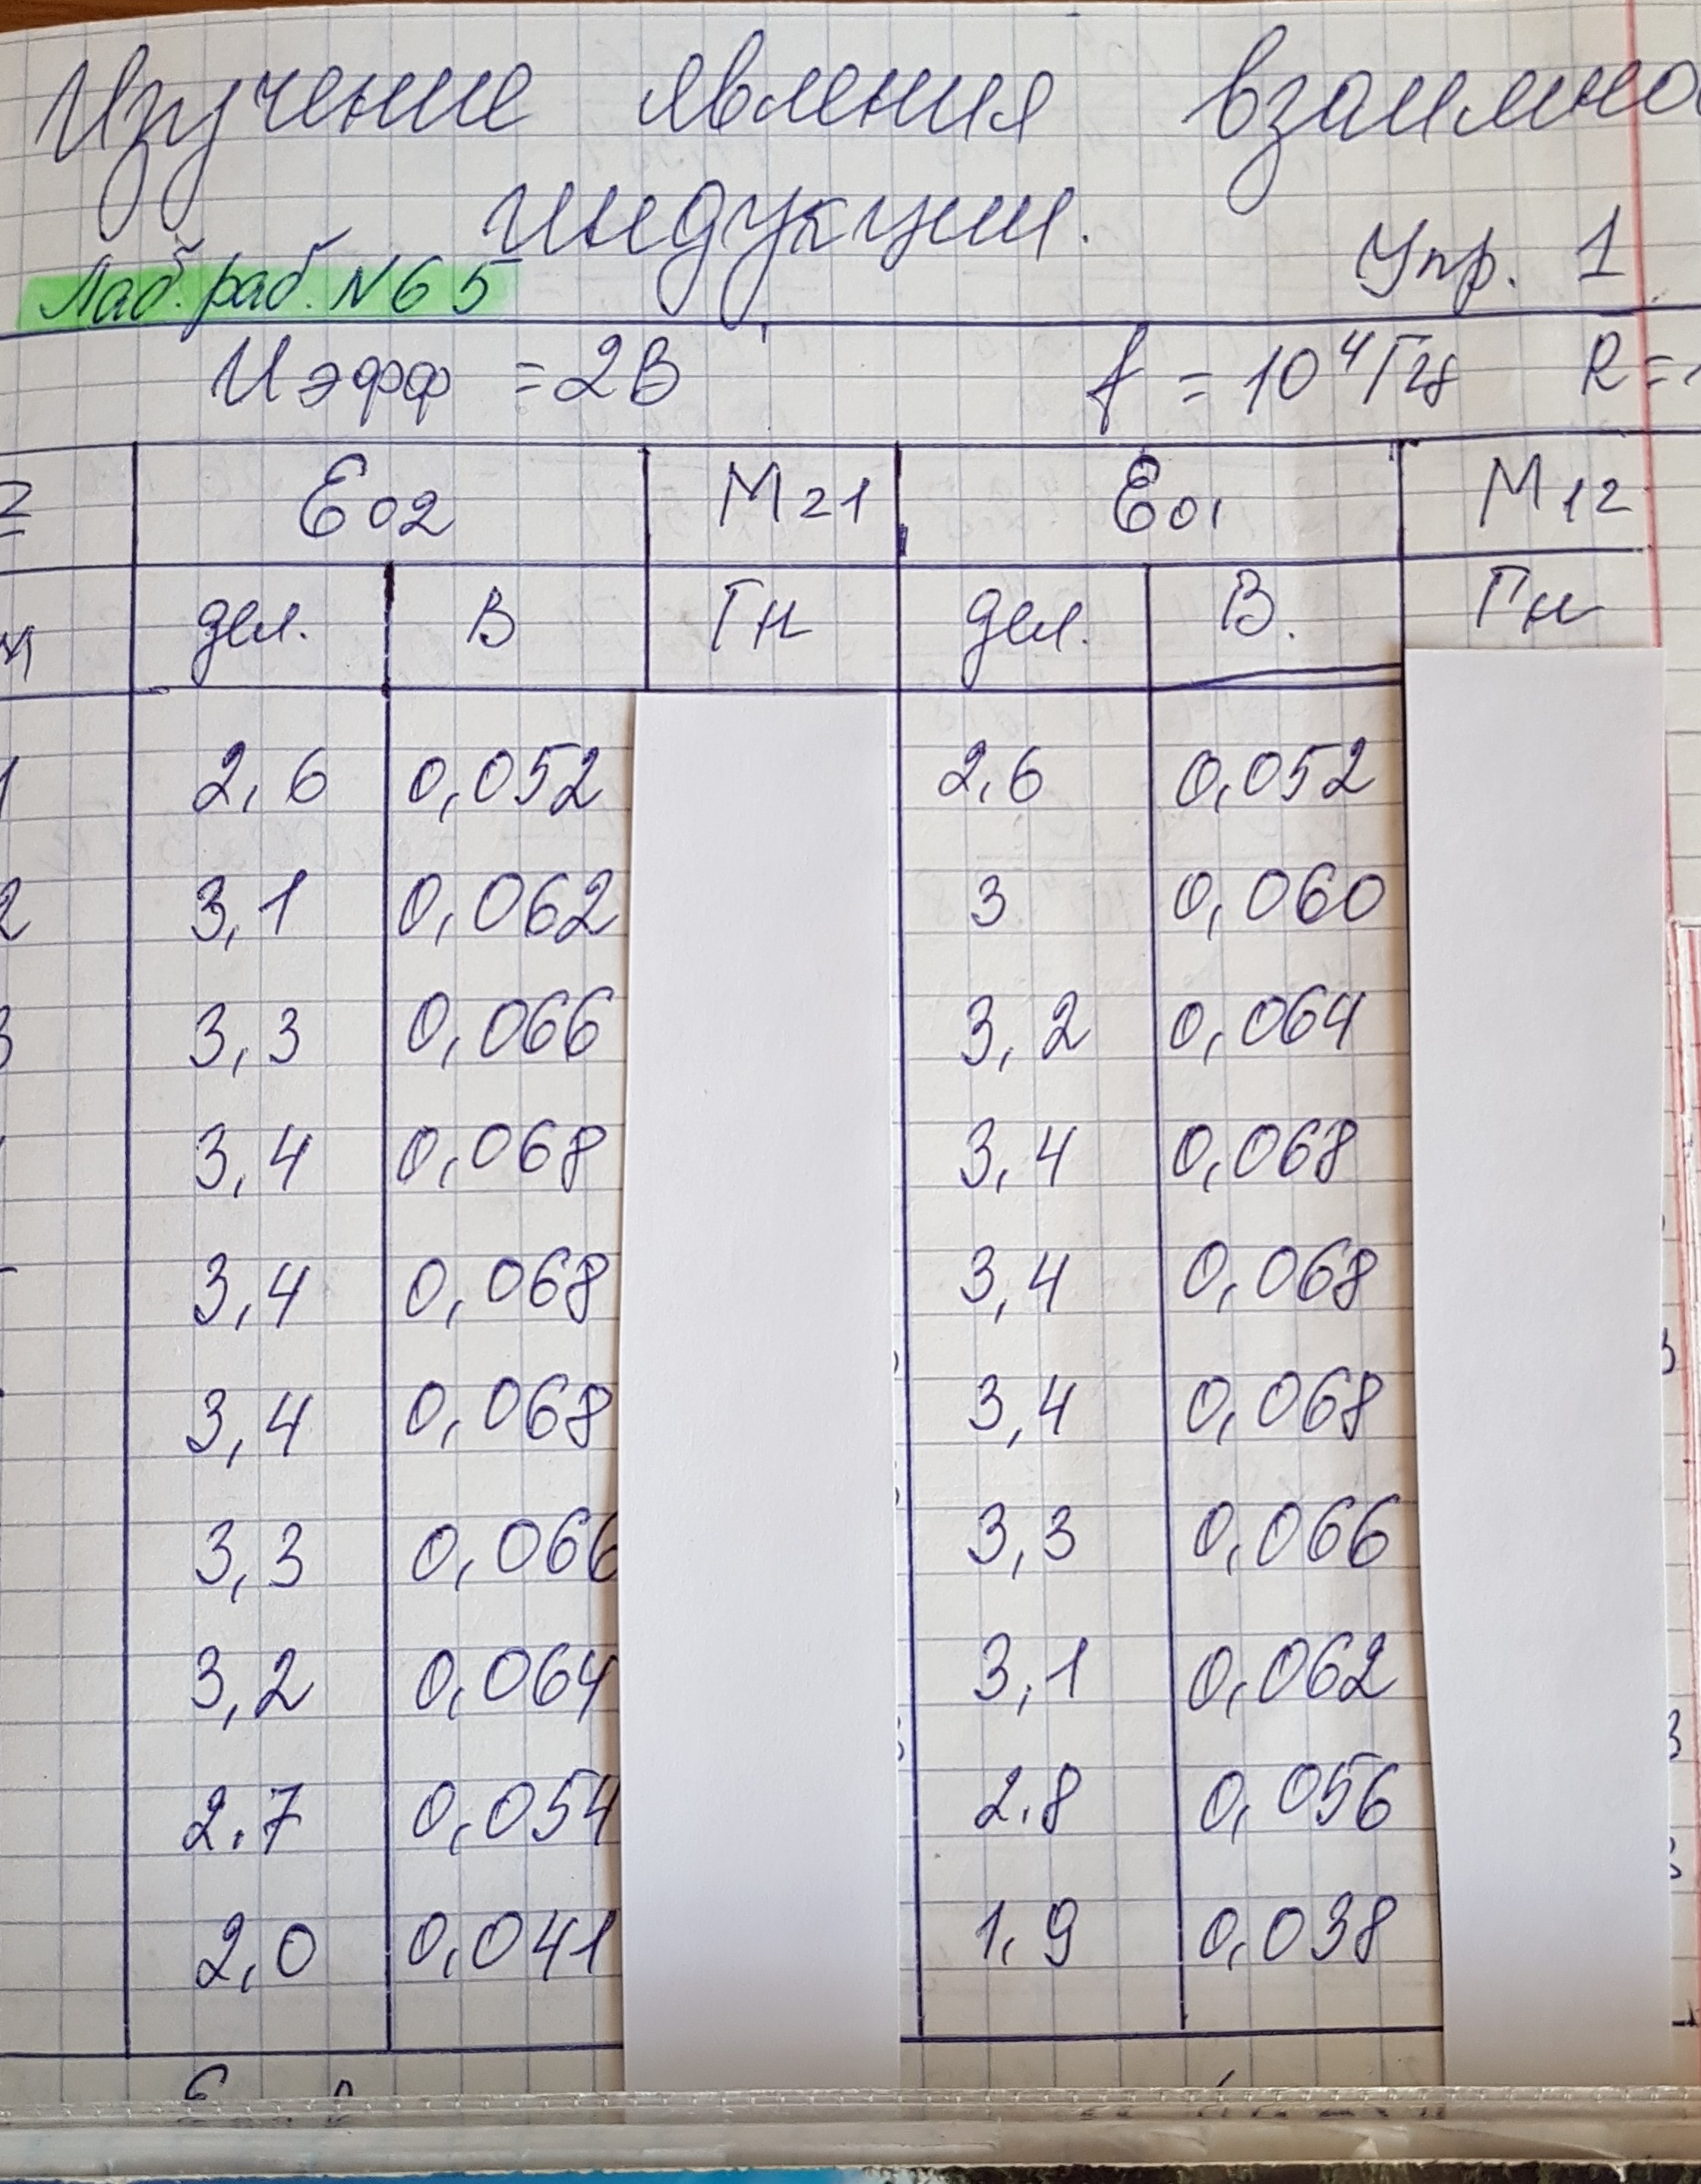 Изучение явления взаимно
индукции.
Лаб. раб. N65 Упр. 1
Uэфф = 2В f = 10⁴Гц R =
Z Ɛ02 M21 Ɛ01 M12
дел. В Гн дел. В. Гн
1 2,6 0,052 2,6 0,052
2 3,1 0,062 3 0,060
3 3,3 0,066 3,2 0,064
3,4 0,068 3,4 0,068
3,4 0,068 3,4 0,068
3,4 0,068 3,4 0,068
3,3 0,066 3,3 0,066
3,2 0,064 3,1 0,062
2.7 0,054 2.8 0,056
2,0 0,041 1,9 0,038